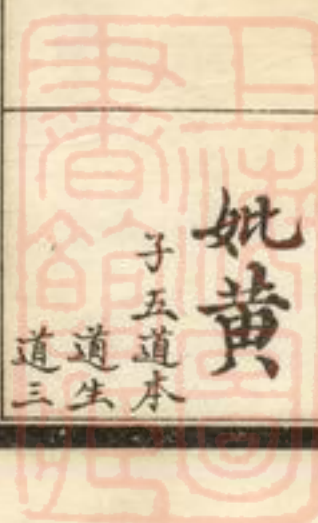 妣黄
子五道本
道生
道三